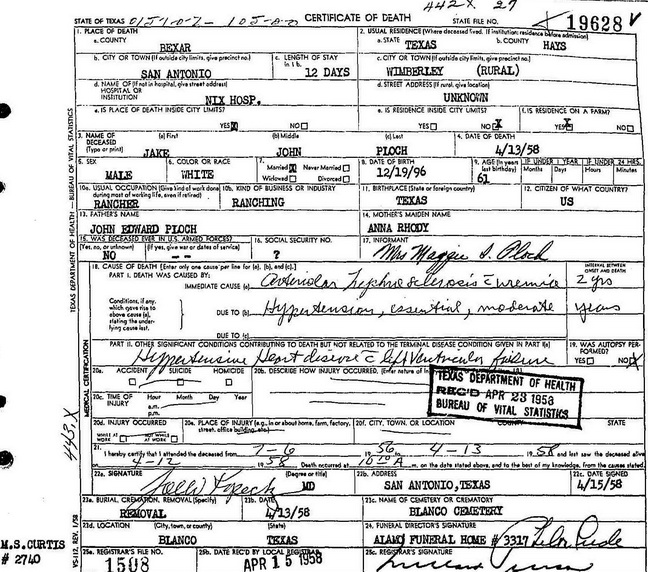 442X 27
STATE OF TEXAS CERTIFICATE OF DEATH STATE FILE NO. 19628
1. PLACE OF DEATH
a. COUNTY BEXAR
2. USUAL RESIDENCE (Where deceased lived. If institution: residence before admission)
a. STATE TEXAS b. COUNTY HAYS
b. CITY OR TOWN (If outside city limits, give precinct no.) SAN ANTONIO
c. LENGTH OF STAY in 1b. 12 DAYS
c. CITY OR TOWN (If outside city limits, give precinct no.) WIMBERLEY (RURAL)
d. NAME OF (If not in hospital, give street address) HOSPITAL OR INSTITUTION NIX HOSP.
d. STREET ADDRESS (If rural, give location) UNKNOWN
e. IS PLACE OF DEATH INSIDE CITY LIMITS? YES X NO
e. IS RESIDENCE INSIDE CITY LIMITS? YES NO X
f. IS RESIDENCE ON A FARM? YES X NO
3. NAME OF DECEASED (Type or print)
(a) First JAKE (b) Middle JOHN (c) Last PLOCH
4. DATE OF DEATH 4/13/58
5. SEX MALE
6. COLOR OR RACE WHITE
7. Married X Never Married Widowed Divorced
8. DATE OF BIRTH 12/19/96
9. AGE (In years last birthday) 61
IF UNDER 1 YEAR Months Days
IF UNDER 24 HRS. Hours Minutes
10a. USUAL OCCUPATION (Give kind of work done during most of working life, even if retired) RANCHER
10b. KIND OF BUSINESS OR INDUSTRY RANCHING
11. BIRTHPLACE (State or foreign country) TEXAS
12. CITIZEN OF WHAT COUNTRY? US
13. FATHER'S NAME JOHN EDWARD PLOCH
14. MOTHER'S MAIDEN NAME ANNA RHODY
15. WAS DECEASED EVER IN U.S. ARMED FORCES? (Yes, no, or unknown) NO (If yes, give war or dates of service) --
16. SOCIAL SECURITY NO. ?
17. INFORMANT Mrs Maggie S. Ploch
18. CAUSE OF DEATH [Enter only one cause per line for (a), (b), and (c).]
INTERVAL BETWEEN ONSET AND DEATH
PART I. DEATH WAS CAUSED BY:
IMMEDIATE CAUSE (a) Arteriolar nephrosclerosis c uremia 2 yrs
Conditions, if any, which gave rise to above cause (a), stating the underlying cause last.
DUE TO (b) Hypertension, essential, moderate years
DUE TO (c)
PART II. OTHER SIGNIFICANT CONDITIONS CONTRIBUTING TO DEATH BUT NOT RELATED TO THE TERMINAL DISEASE CONDITION GIVEN IN PART I(a)
Hypertensive Heart disease c left Ventricular failure
19. WAS AUTOPSY PERFORMED? YES NO X
20a. ACCIDENT SUICIDE HOMICIDE
20b. DESCRIBE HOW INJURY OCCURRED. (Enter nature of
20c. TIME OF INJURY Hour a.m. p.m. Month Day Year
TEXAS DEPARTMENT OF HEALTH
REC'D APR 23 1958
BUREAU OF VITAL STATISTICS
20d. INJURY OCCURRED WHILE AT WORK NOT WHILE AT WORK
20e. PLACE OF INJURY (e.g., in or about home, farm, factory, street, office building, etc.)
20f. CITY, TOWN, OR LOCATION COUNTY STATE
21. I hereby certify that I attended the deceased from 7-6 1956 to 4-13 1958 and last saw the deceased alive
on 4-12 1958 Death occurred at A m. on the date stated above, and to the best of my knowledge, from the causes stated.
22a. SIGNATURE (Degree or title) MD
22b. ADDRESS SAN ANTONIO, TEXAS
22c. DATE SIGNED 4/15/58
23a. BURIAL, CREMATION, REMOVAL (Specify) REMOVAL
23b. DATE 4/13/58
23c. NAME OF CEMETERY OR CREMATORY BLANCO CEMETERY
23d. LOCATION (City, town, or county) BLANCO (State) TEXAS
24. FUNERAL DIRECTOR'S SIGNATURE
ALAMO FUNERAL HOME # 3317
25a. REGISTRAR'S FILE NO. 1508
25b. DATE REC'D BY LOCAL REGISTRAR APR 15 1958
25c. REGISTRAR'S SIGNATURE
TEXAS DEPARTMENT OF HEALTH — BUREAU OF VITAL STATISTICS
MEDICAL CERTIFICATION
443,X
VS-112, REV. 1/58
M.S. CURTIS
# 2740